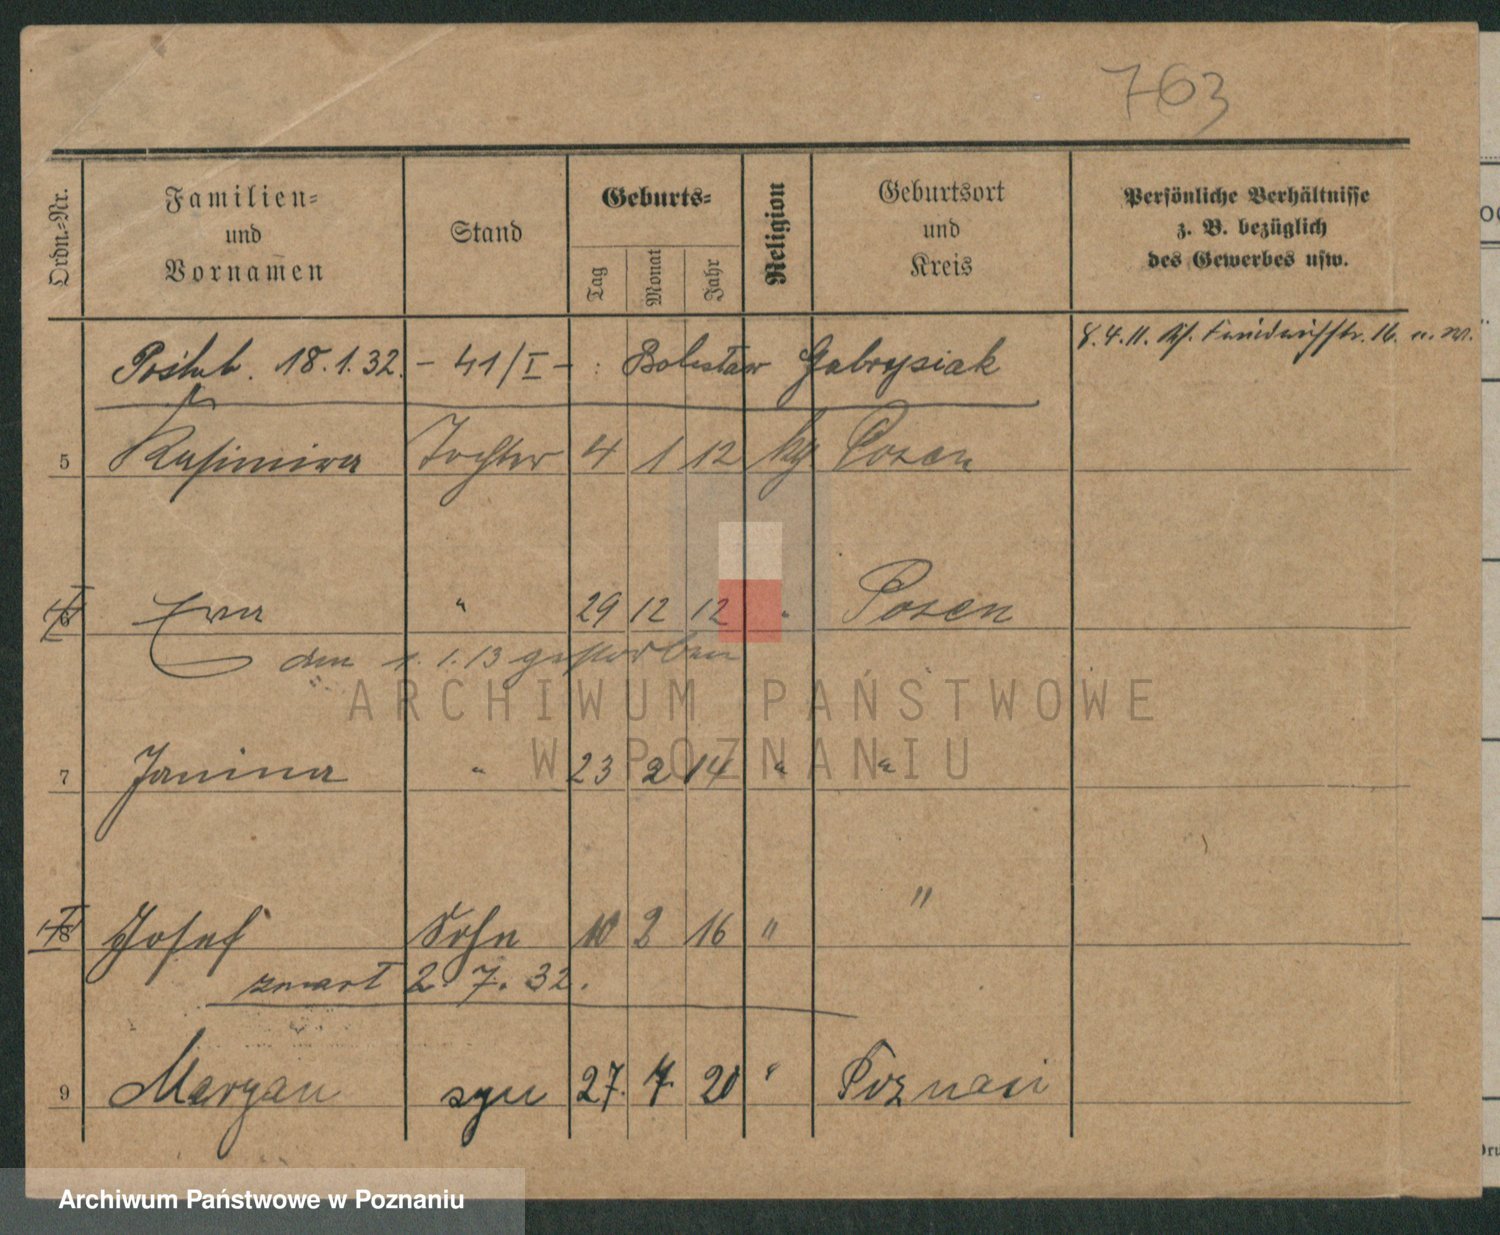 763
Ordn.-Nr.
Familien-
und
Vornamen
Stand
Geburts-
Tag
Monat
Jahr
Religion
Geburtsort
und
Kreis
Persönliche Verhältnisse
z. B. bezüglich
des Gewerbes usw.
8.4.11. 16. u. W.
Poślub. 18.1.32. - 41/I - : Bolesław Gabrysiak
5 Kasimira Tochter 4 1 12 kg Posen
6 Ewa " 29 12 12 " Posen
den 1.1.13 gestorben
7 Janina " 23 2 14 " "
8 Josef Sohn 10 2 16 " "
zmarł 2.7.32.
9 Maryan syn 27. 7. 20 " Poznań
ARCHIWUM PAŃSTWOWE
W POZNANIU
Archiwum Państwowe w Poznaniu